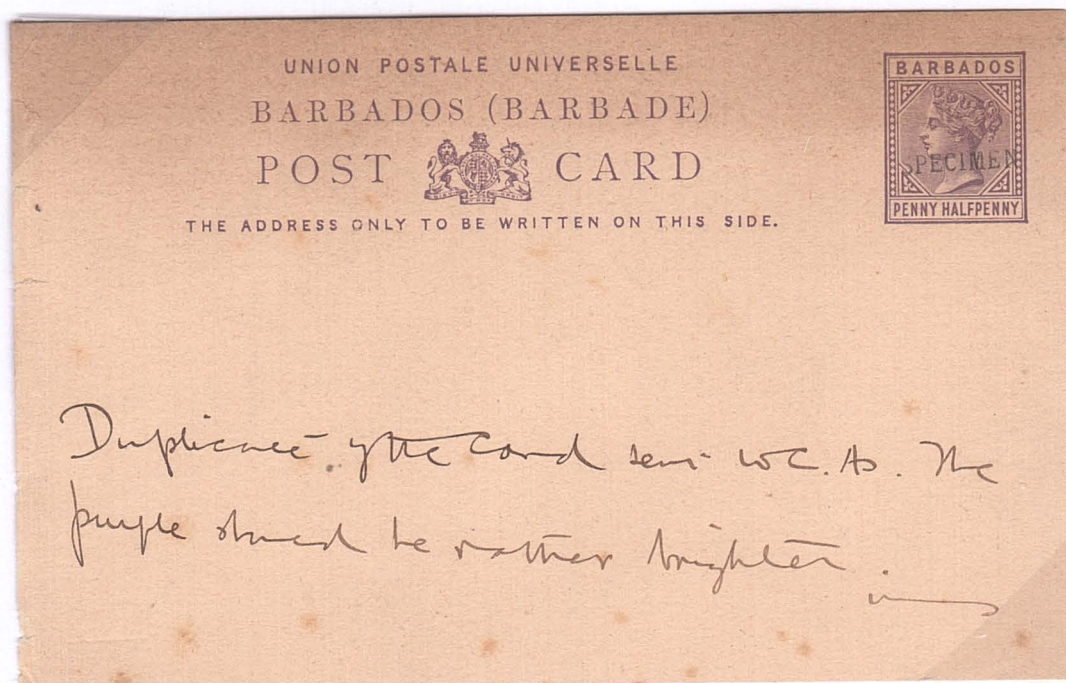 UNION POSTALE UNIVERSELLE
BARBADOS (BARBADE)
POST CARD
THE ADDRESS ONLY TO BE WRITTEN ON THIS SIDE.
BARBADOS
SPECIMEN
PENNY HALFPENNY
Duplicate of the Card sent W C. The
purple should be rather brighter.